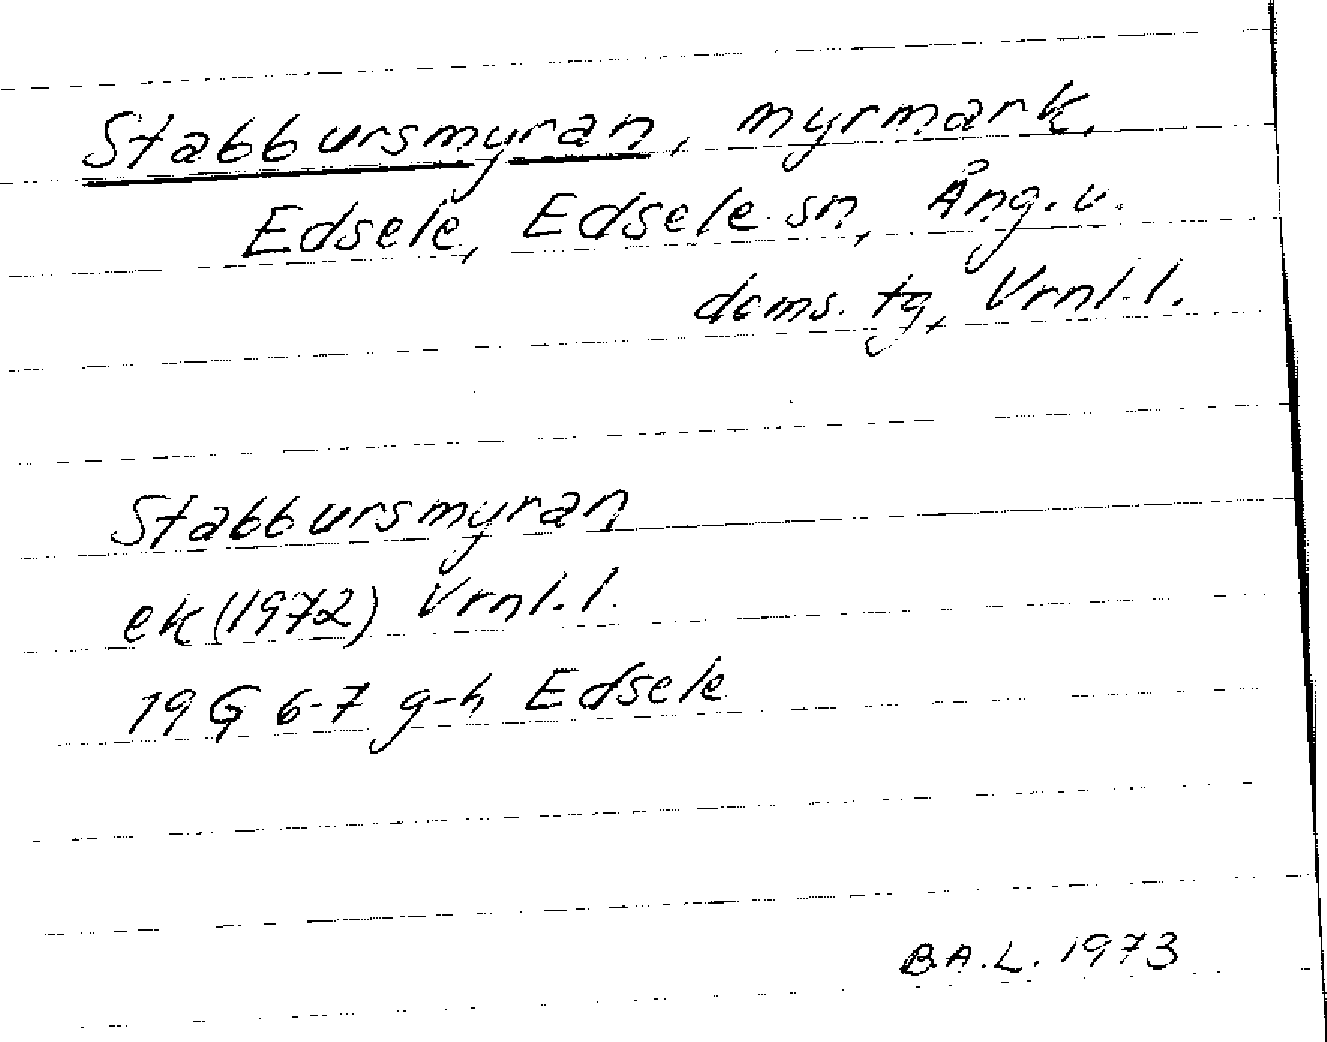 Stabbursmyran, myrmark,
Edsele, Edsele sn, Ång. v.
doms. tg, Vrnl. l.
Stabbursmyran
ek (1972) Vrnl. l.
19 G 6-7 g-h Edsele
B.A.L. 1973